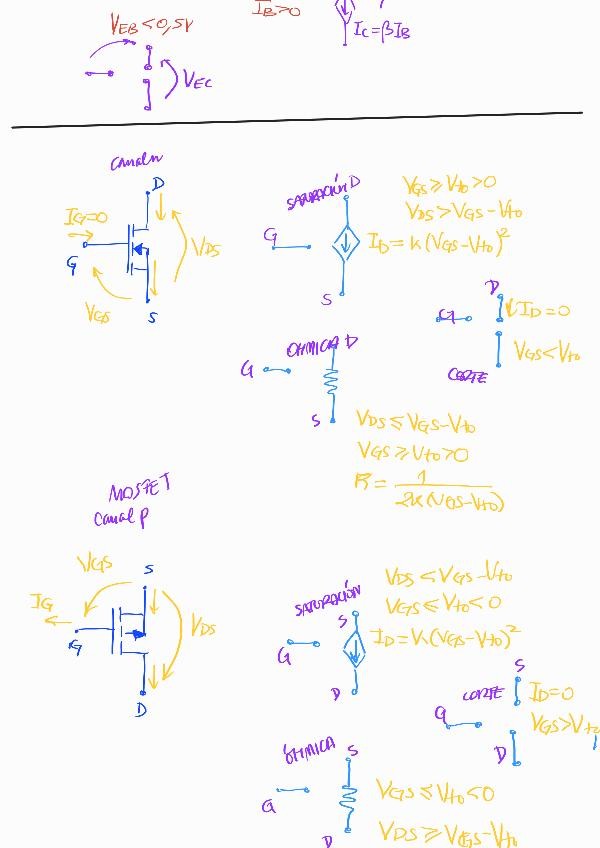 V_EB < 0,5V
I_B > 0
I_C = βI_B
V_EC
Canal n
D
I_G=0
G
V_DS
V_GS
S
SATURACIÓN
D
G
S
V_GS ≥ V_to > 0
V_DS > V_GS - V_to
I_D = K(V_GS - V_to)²
D
G
I_D = 0
V_GS < V_to
CORTE
OHMICA
D
G
S
V_DS ≤ V_GS - V_to
V_GS ≥ V_to > 0
R = 1 / 2K(V_GS - V_to)
MOSFET
Canal P
V_GS
S
I_G
G
V_DS
D
SATURACIÓN
S
G
D
V_DS < V_GS - V_to
V_GS ≤ V_to < 0
I_D = K(V_GS - V_to)²
CORTE
S
G
D
I_D = 0
V_GS > V_to
ÓHMICA
S
G
D
V_GS ≤ V_to < 0
V_DS ≥ V_GS - V_to